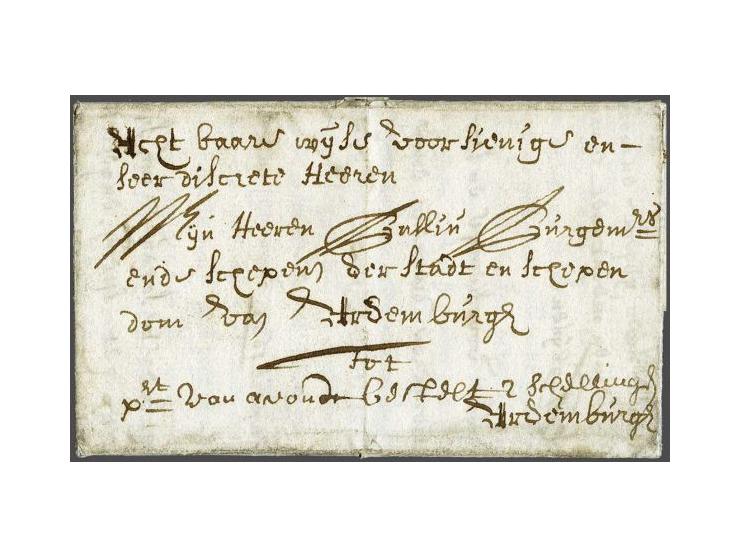 Acht baare wijse voorsienige en-
seer discrete Heeren
Mijn Heeren Balliu Burgemrs
ende schepenen der stadt en schepen
dom van Ardemburgh
tot
prt van avondt bestelt 2 schellingh
Ardemburgh